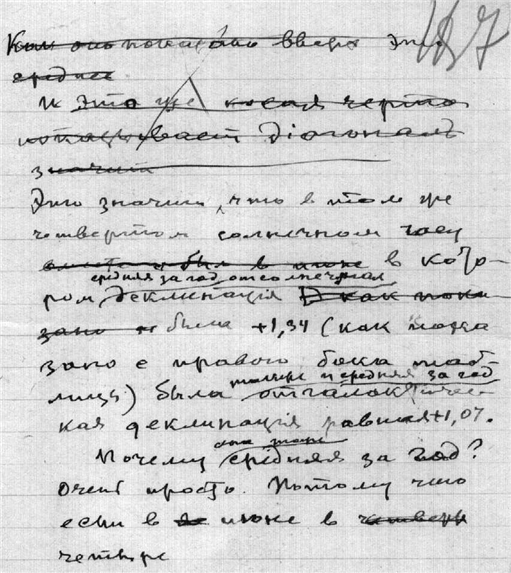 187
Как оно показано вверх это
среднее.
И эта же косая черта
показывает діогональ
значит
Это значит, что в том же
четвертом солнечном часу
в июне в кото-
средняя за год отсолнечная
ром деклинація как пока-
зано была +1,34 (как пока
зано с правого бока таб-
лицы) была
также и средняя за год
отгалактичес
кая деклинація равная +1,07.
она тоже
Почему средняя за год?
Очень просто. Потому что
если в июне в четверт
четыре